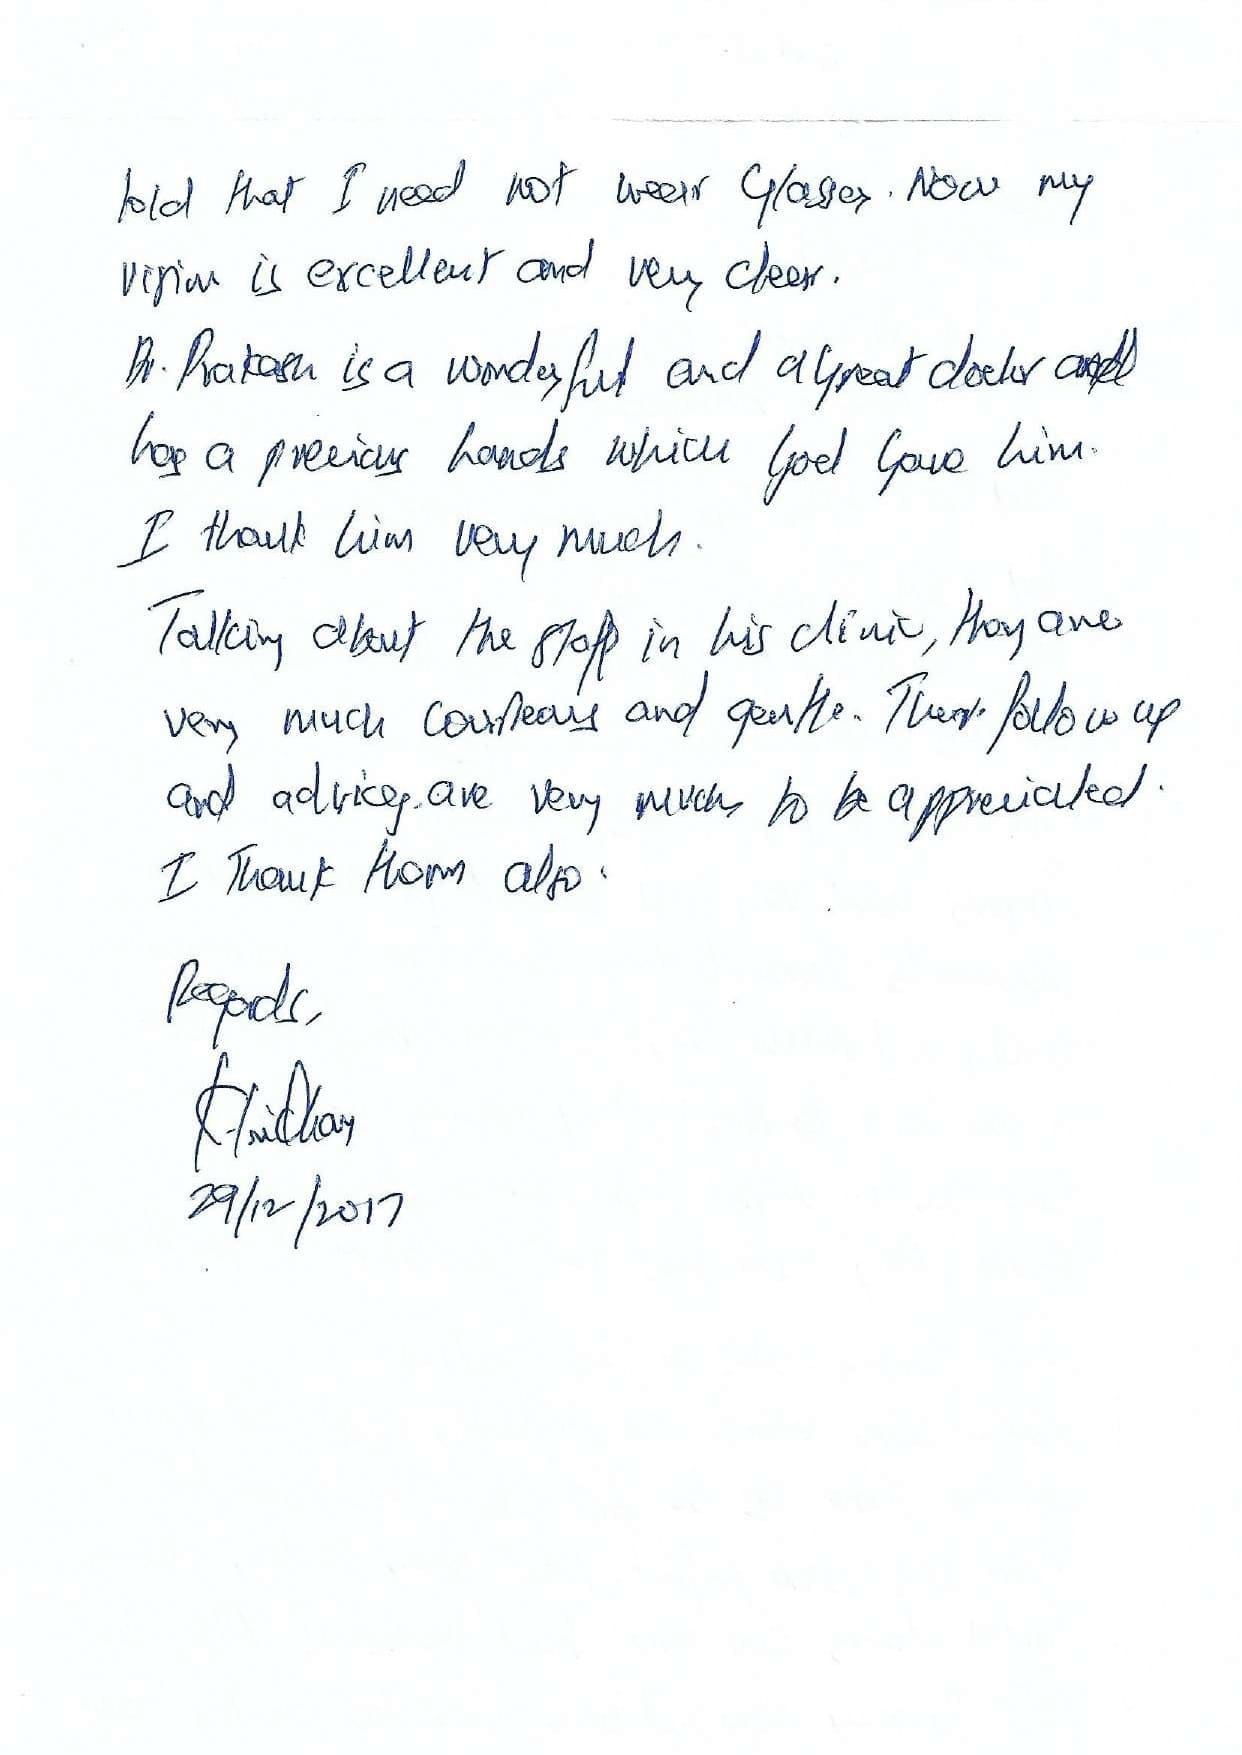 told that I need not wear Glasses. Now my
vision is excellent and very clear.
Dr. Prakash is a wonderful and a Great doctor and
has a precious hands which God Gave him.
I thank him very much.
Talking about the staff in his clinic, they are
very much courteous and gentle. Their follow up
and advices are very much to be appreciated.
I Thank them also.
Regards,
29/12/2017